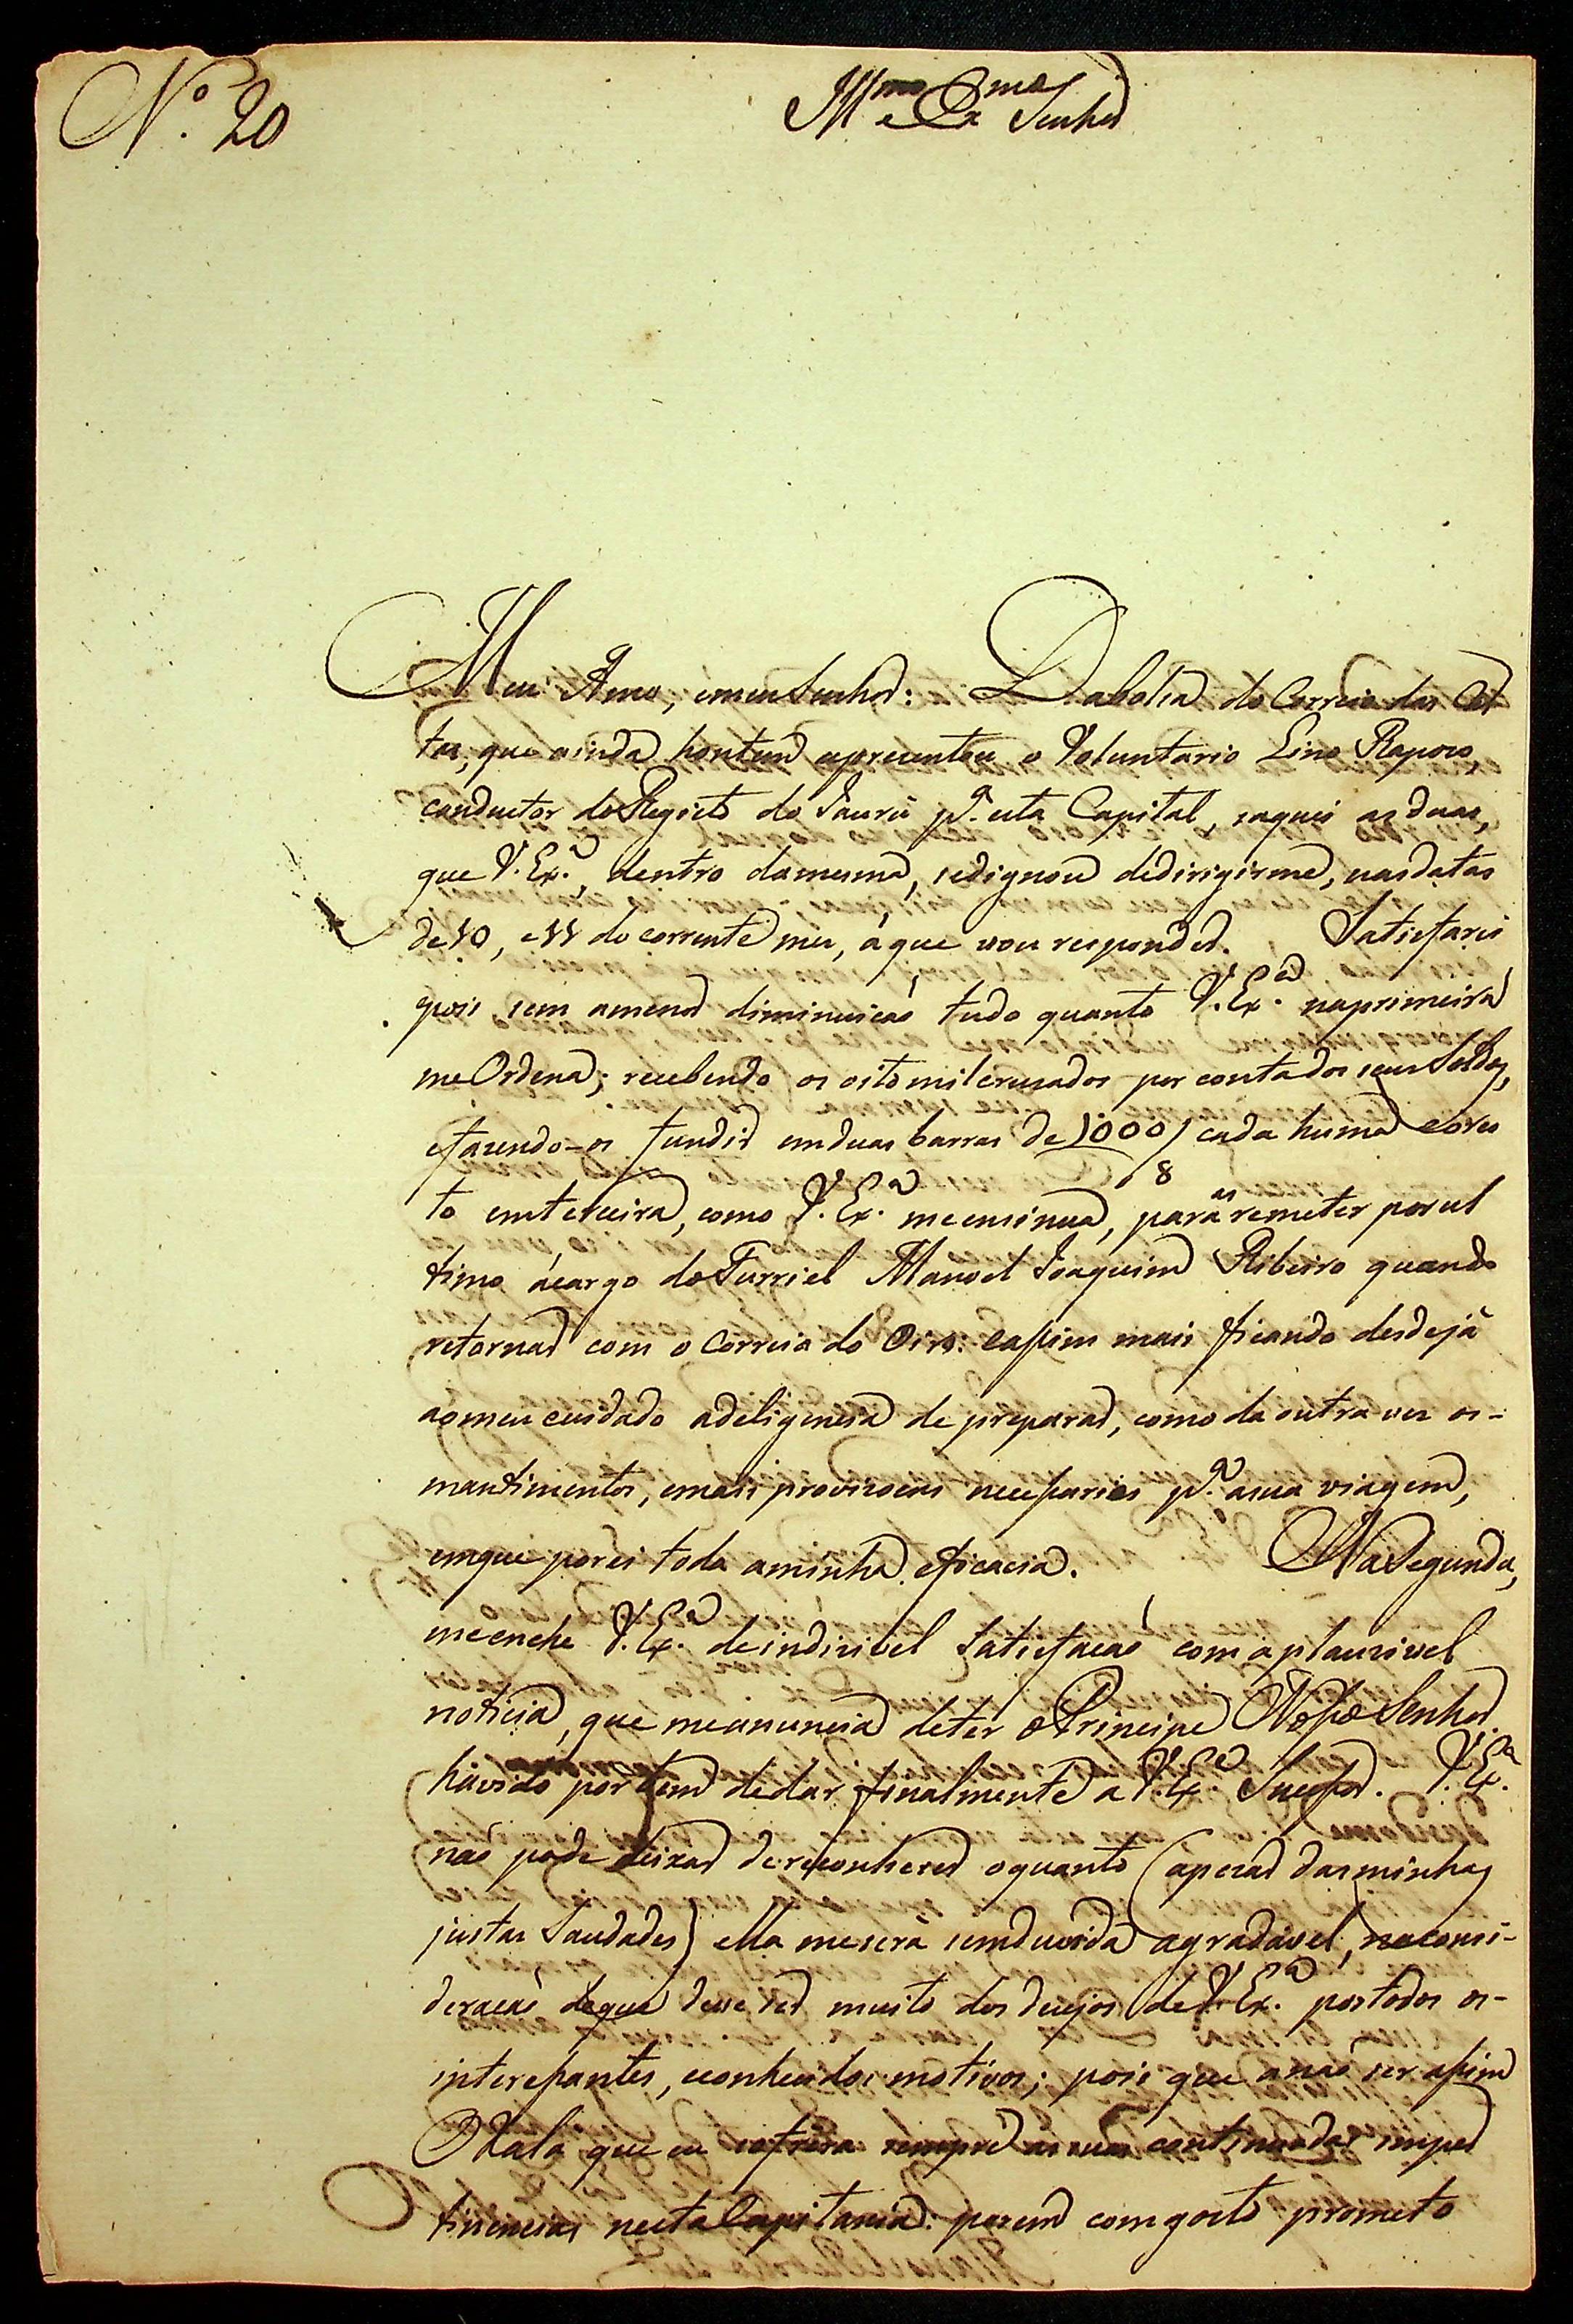 N.º 20
Ill.mo e Ex.mo Senhor
Meu Amo, emeu Senhor: Dabolsa do Correio das Car
tas, que ainda hontem aprezentou o Voluntario Lino Rapozo,
conductor do Registo do Jaurú p.ª esta Capital, saquei as duas,
que V. Ex.ª, dentro damesma, sedignou dedirigirme, nasdatas
de 10, e 11 do corrente mez, áque vou responder. Satisfarei
pois sem amenor diminuicaõ tudo quanto V. Ex.ª naprimeira
me Ordena; recebendo os oitomilcruzados por contados seus Soldos,
efazendo-os fundir emduas barras de 1000/8 cada huma eores
to emterceira, como V. Ex.ª meensinua, para as remeter porul
timo ácargo do Furriel Manoel Joaquim Ribeiro quando
retornar com o Correio do Oiro: eassim mais ficando desdejá
aomeu cuidado adeligencia de preparar, como da outra vez os-
mantimentos, emais provizoens necessarios p.ª asua viagem,
emque porei toda aminha eficacia. Na Segunda,
meenche V. Ex.ª deindizivel Satisfacaõ com aplauzivel
noticia, que meanuncia deter o Principe Nosso Senhor
havido por bem dedar finalmente a V. Ex.ª Sucessor. V. Ex.ª
naõ pode deixar de reconhecer oquanto (apezar das minhas
justas Saudades) ella meserá semduvida agradavel, naconsi-
deracaõ deque deve ser muito dos dezejos de V. Ex.ª portodos os-
interessantes, econhecidos motivos; pois que anaõ ser assim
Oxalá que eu sofrera sempre as suas continuadas imper
tinencias nesta Capitania: porem comgosto prometo